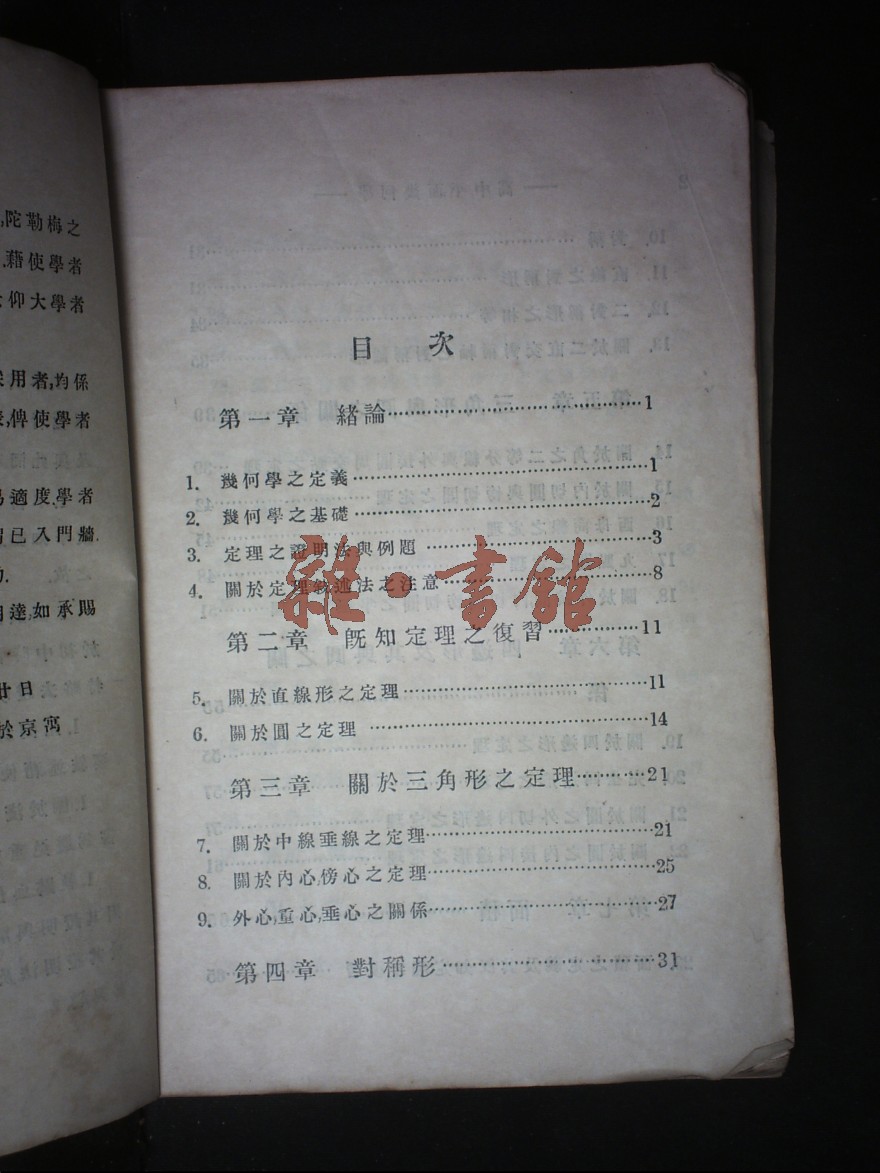 陀勒梅之
藉使學者
仰大學者
用者,均係
俾使學者
適度學者
已入門牆.
達,如承賜
廿日
於京寓
目 次
第一章 緒論 1
1. 幾何學之定義 1
2. 幾何學之基礎 2
3. 定理之證明法與例題 3
4. 關於定理敍述法之注意 8
第二章 旣知定理之復習 11
5. 關於直線形之定理 11
6. 關於圓之定理 14
第三章 關於三角形之定理 21
7. 關於中線垂線之定理 21
8. 關於內心,傍心之定理 25
9. 外心,重心,垂心之關係 27
第四章 對稱形 31
雜·書館